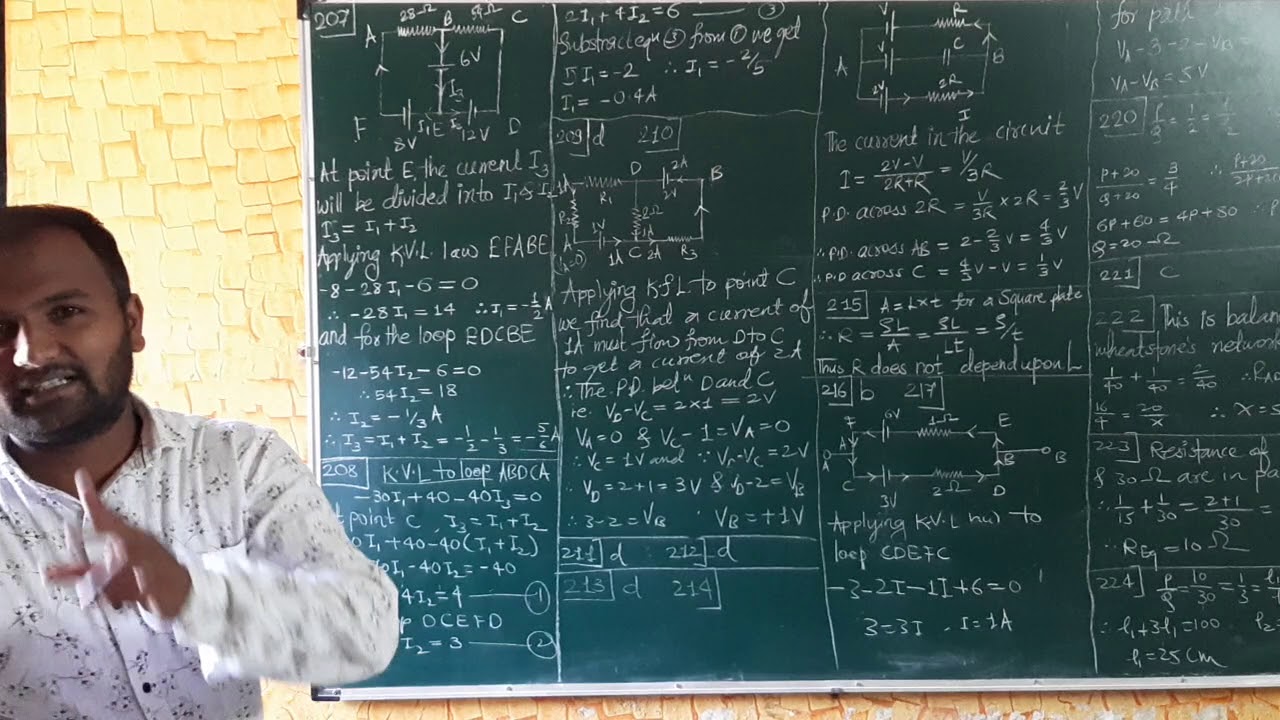 207
28Ω B 54Ω C
A
6V
I3
F I1 E I2 D
8V 12V
At point E, the current I3
will be divided into I1 & I2
I3 = I1 + I2
Applying K.V.L law EFABE
-8 - 28I1 - 6 = 0
∴ -28I1 = 14 ∴ I1 = -1/2 A
and for the loop EDCBE
-12 - 54I2 - 6 = 0
∴ 54I2 = 18
∴ I2 = -1/3 A
∴ I3 = I1 + I2 = -1/2 - 1/3 = -5/6 A
208 K.V.L to loop ABDCA
-30I1 + 40 - 40I3 = 0
point C, I3 = I1 + I2
I1 + 40 - 40(I1 + I2)
I1 - 40I2 = -40
4I2 = 4 1
DCEFD
I2 = 3 2
2I1 + 4I2 = 6 3
Substract equn 3 from 1 we get
5I1 = -2 ∴ I1 = -2/5
I1 = -0.4A
209 d 210
D 2A B
1A R1 2V
R2 2Ω
1V 1A
A C R3
(VA=0) 1A 2A
Applying KfL to point C
we find that a current of
1A must flow from D to C
to get a current of 2A
∴ The P.D. betn D and C
ie. VD - VC = 2×1 = 2V
VA = 0 & VC - 1 = VA = 0
∴ VC = 1V and ∵ VD - VC = 2V
∴ VD = 2+1 = 3V & VD - 2 = VB
∴ 3-2 = VB ∴ VB = +1V
211 d 212 d
213 d 214
V R
V C
A B
2V 2R
I
The current in the circuit
I = 2V-V/2R+R = V/3R
P.D. across 2R = V/3R × 2R = 2/3 V
∴ P.D. across AB = 2 - 2/3 V = 4/3 V
∴ P.D across C = 4/3 V - V = 1/3 V
215 A = L×t for a Square plate
∴ R = ρL/A = ρL/Lt = ρ/t
Thus R does not depend upon L
216 b 217
F 6V 1Ω E
A
A B B
C 3V 2Ω D
Applying K.V.L to
loop CDEFC
-3-2I-1I+6=0
3=3I I=1A
for path
VA-3-2-VB =
VA-VB = 5V
220 P/Q = 1/2
P+20/Q+20 = 3/4
6P+60 = 4P+80
Q=20 Ω
221 C
222 This is balan
wheatstone's network
1/40 + 1/40 = 2/40 ∴ RAD
16/4 = 20/x ∴ X = 5
223 Resistance of
& 30 Ω are in pa
∴ 1/15 + 1/30 = 2+1/30 =
∴ REq = 10 Ω
224 P/Q = 10/30 = 1/3 = l1
∴ l1+3l1 = 100 l2
l1 = 25 Cm